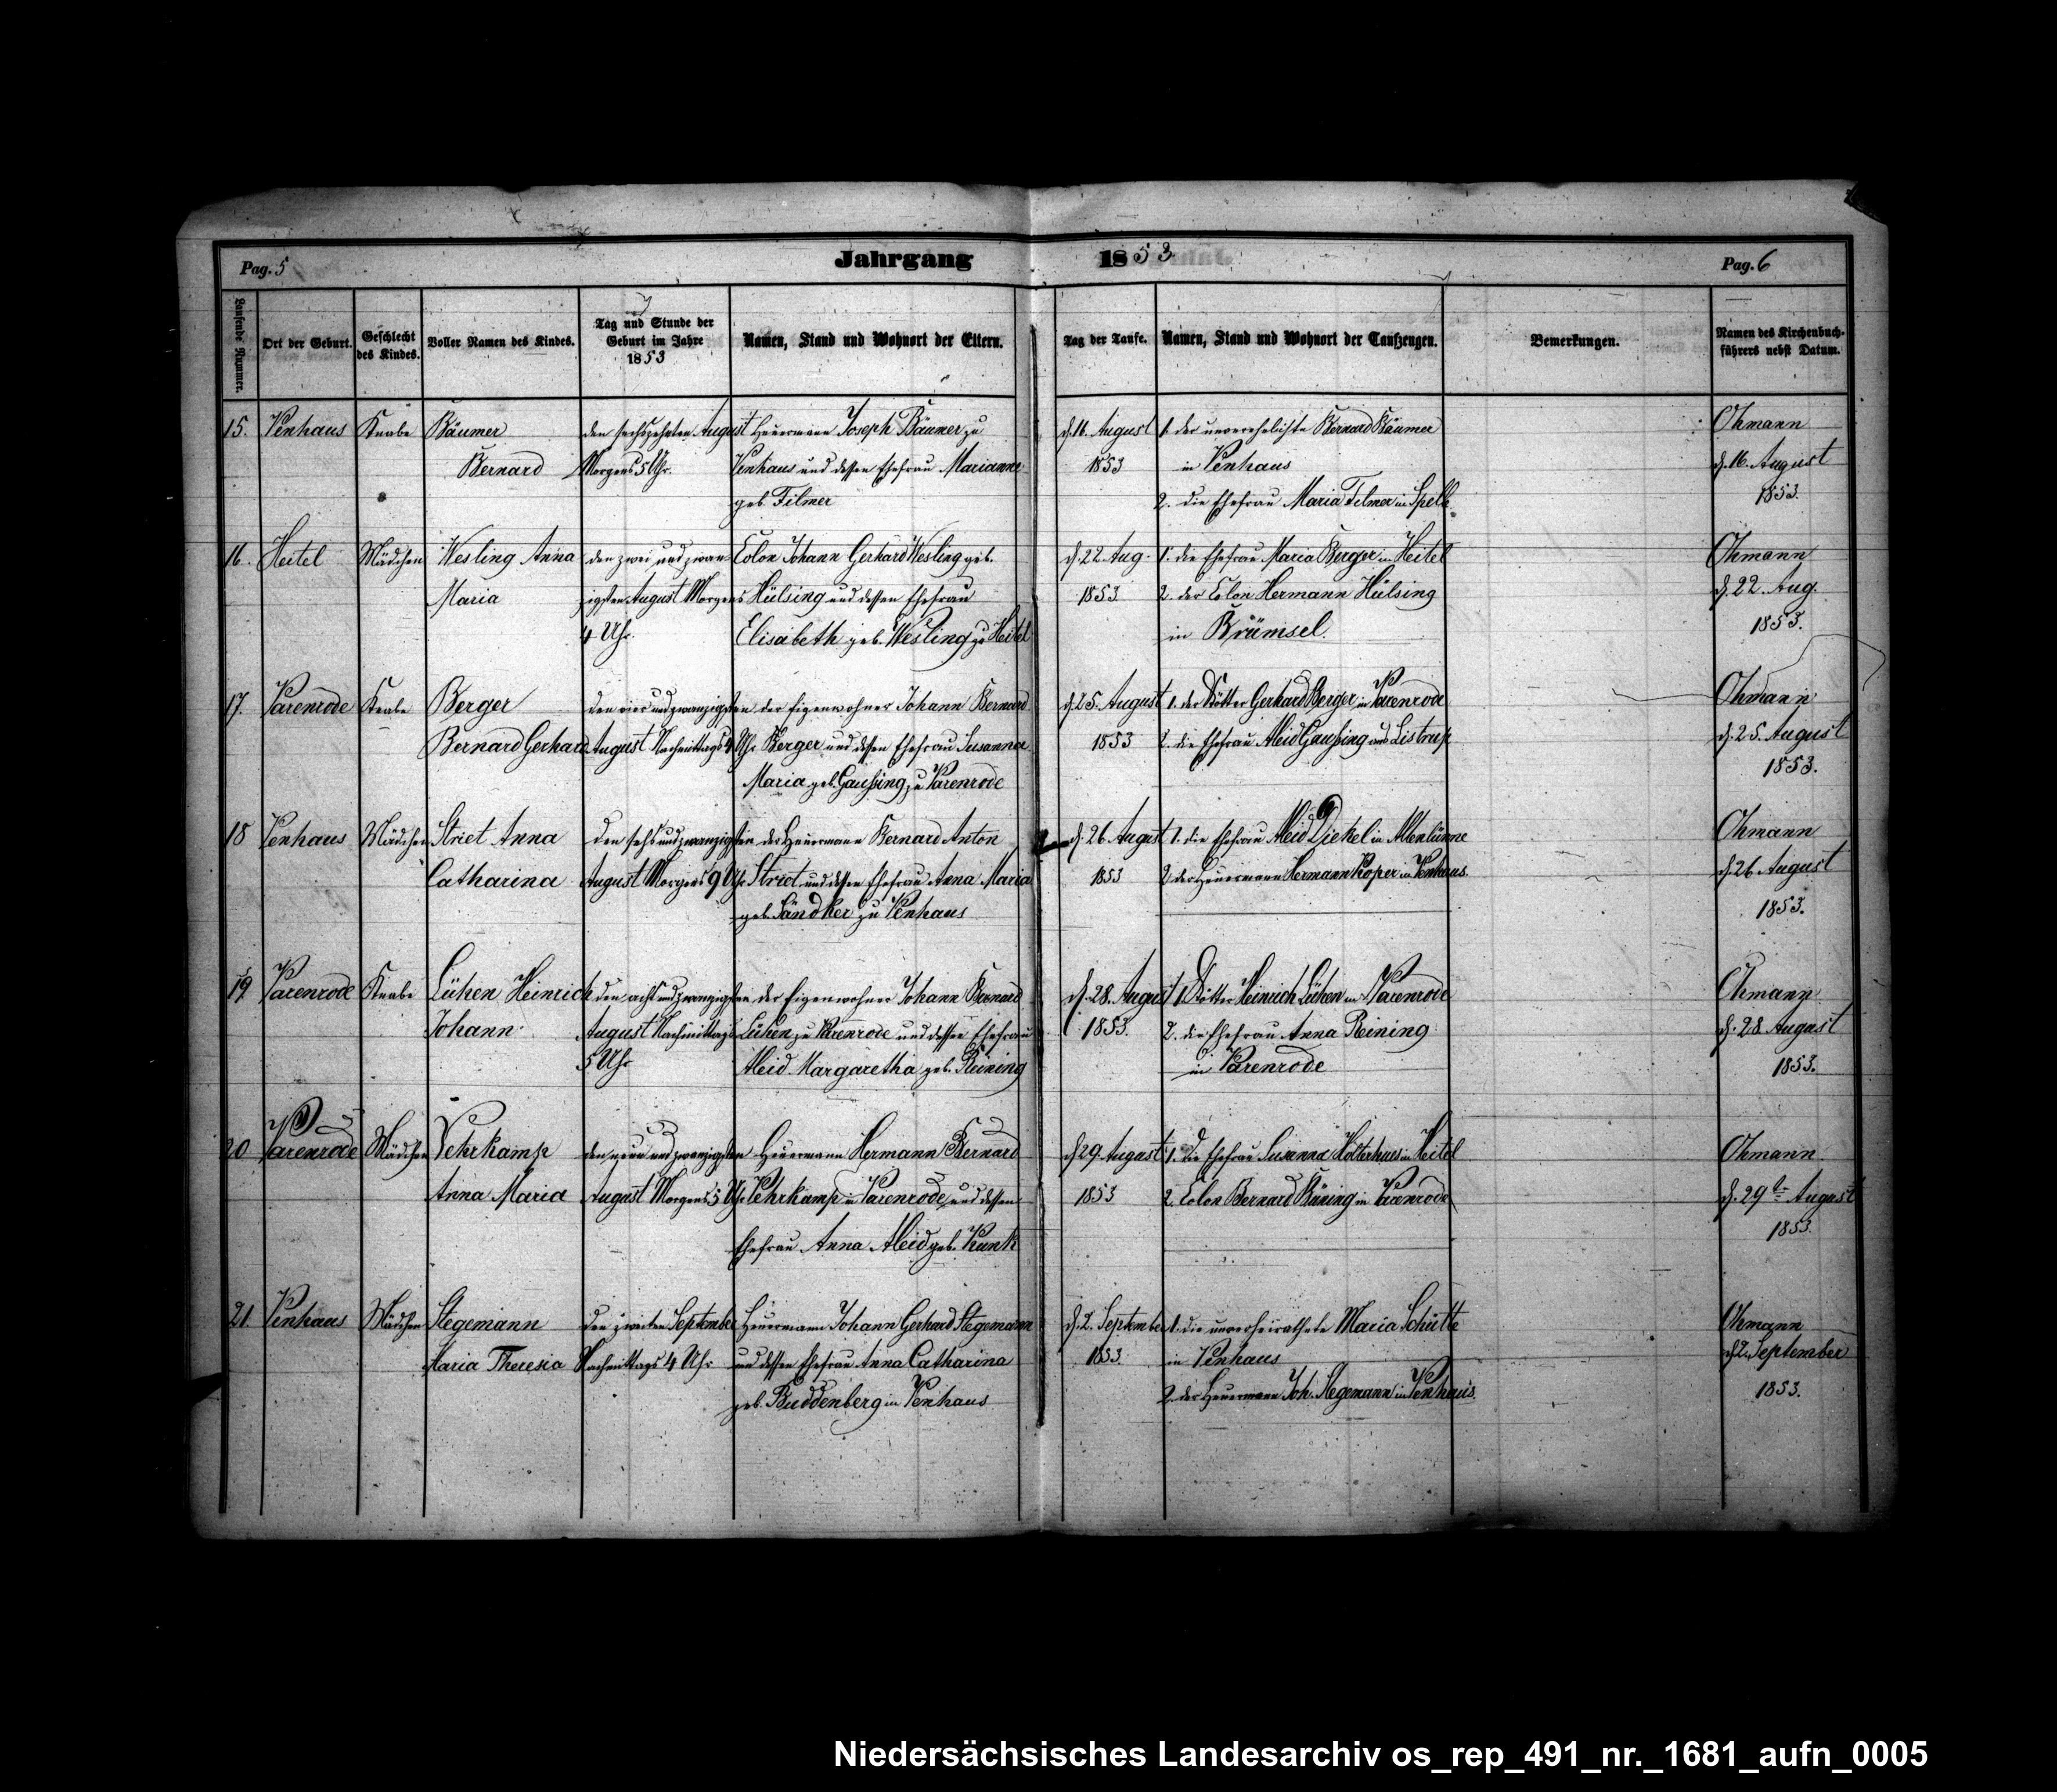 Pag. 5
Jahrgang 1853
Pag. 6
Laufende Nummer.
Ort der Geburt.
Geschlecht
des Kindes.
Voller Namen des Kindes.
Tag und Stunde der
Geburt im Jahre
1853
Namen, Stand und Wohnort der Eltern.
Tag der Taufe.
Namen, Stand und Wohnort der Taufzeugen.
Bemerkungen.
Namen des Kirchenbuch-
führers nebst Datum.
15. Venhaus Knabe Bäumer den sechszehnten August Heuermann Joseph Bäumer zu d. 16. August 1. der unverehelichte Bernard Bäumer Ohmann
Bernard Morgens 5 Uhr. Venhaus und dessen Ehefrau Marianne 1853 in Venhaus d. 16. August
geb. Tilmer 2. die Ehefrau Maria Tilmer in Spelle. 1853.
16. Heitel Mädchen Wesling Anna den zwei und zwan- Colon Johann Gerhard Wesling geb. d. 22 Aug. 1. die Ehefrau Maria Berger in Heitel Ohmann
Maria zigsten August Morgens Hülsing und dessen Ehefrau 1853. 2. der Colon Hermann Hülsing d. 22. Aug.
4 Uhr. Elisabeth geb. Wesling zu Heitel in Brümsel. 1853.
17. Varenrode Knabe Berger den vier und zwanzigsten der Eigenwohner Johann Bernard d. 25. August 1. der Kötter Gerhard Berger in Varenrode Ohmann
Bernard Gerhard August Nachmittags 4 Uhr Berger und dessen Ehefrau Susanna 1853 2. die Ehefrau Aleid Gaußing aus Listrup d. 25. August
Maria geb. Gaußing zu Varenrode 1853.
18 Venhaus Mädchen Striet Anna den sechs und zwanzigsten der Heuermann Bernard Anton d. 26. August 1. die Ehefrau Aleid Diekel in Altenlünne Ohmann
Catharina August Morgens 9 Uhr Striet und dessen Ehefrau Anna Maria 1853 2. der Heuermann Hermann Köper in Venhaus. d. 26 August
geb. Sändker zu Venhaus 1853.
19. Varenrode Knabe Lühen Heinrich den acht und zwanzigsten der Eigenwohner Johann Bernard d. 28. August 1. Kötter Heinrich Lühen in Varenrode Ohmann
Johann August Nachmittags Lühen zu Varenrode und dessen Ehefrau 1853. 2. die Ehefrau Anna Reining d. 28 August
5 Uhr Aleid Margaretha geb. Reining in Varenrode 1853.
20 Varenrode Mädchen Vehrkamp den neun und zwanzigsten Heuermann Hermann Bernard d. 29. August 1. die Ehefrau Susanna Holterhues in Heitel Ohmann
Anna Maria August Morgens 5 Uhr Vehrkamp in Varenrode und dessen 1853 2. Colon Bernard Büning in Varenrode d. 29t August
Ehefrau Anna Aleid geb. Kunk 1853.
21. Venhaus Mädchen Stegemann den zweiten September Heuermann Johann Gerhard Stegemann d. 2. September 1. die unverheirathete Maria Schütte Ohmann
Maria Theresia Nachmittags 4 Uhr und dessen Ehefrau Anna Catharina 1853. in Venhaus d. 2. September
geb. Buddenberg in Venhaus 2. der Heuermann Joh. Stegemann in Venhaus. 1853.
Niedersächsisches Landesarchiv os_rep_491_nr._1681_aufn_0005